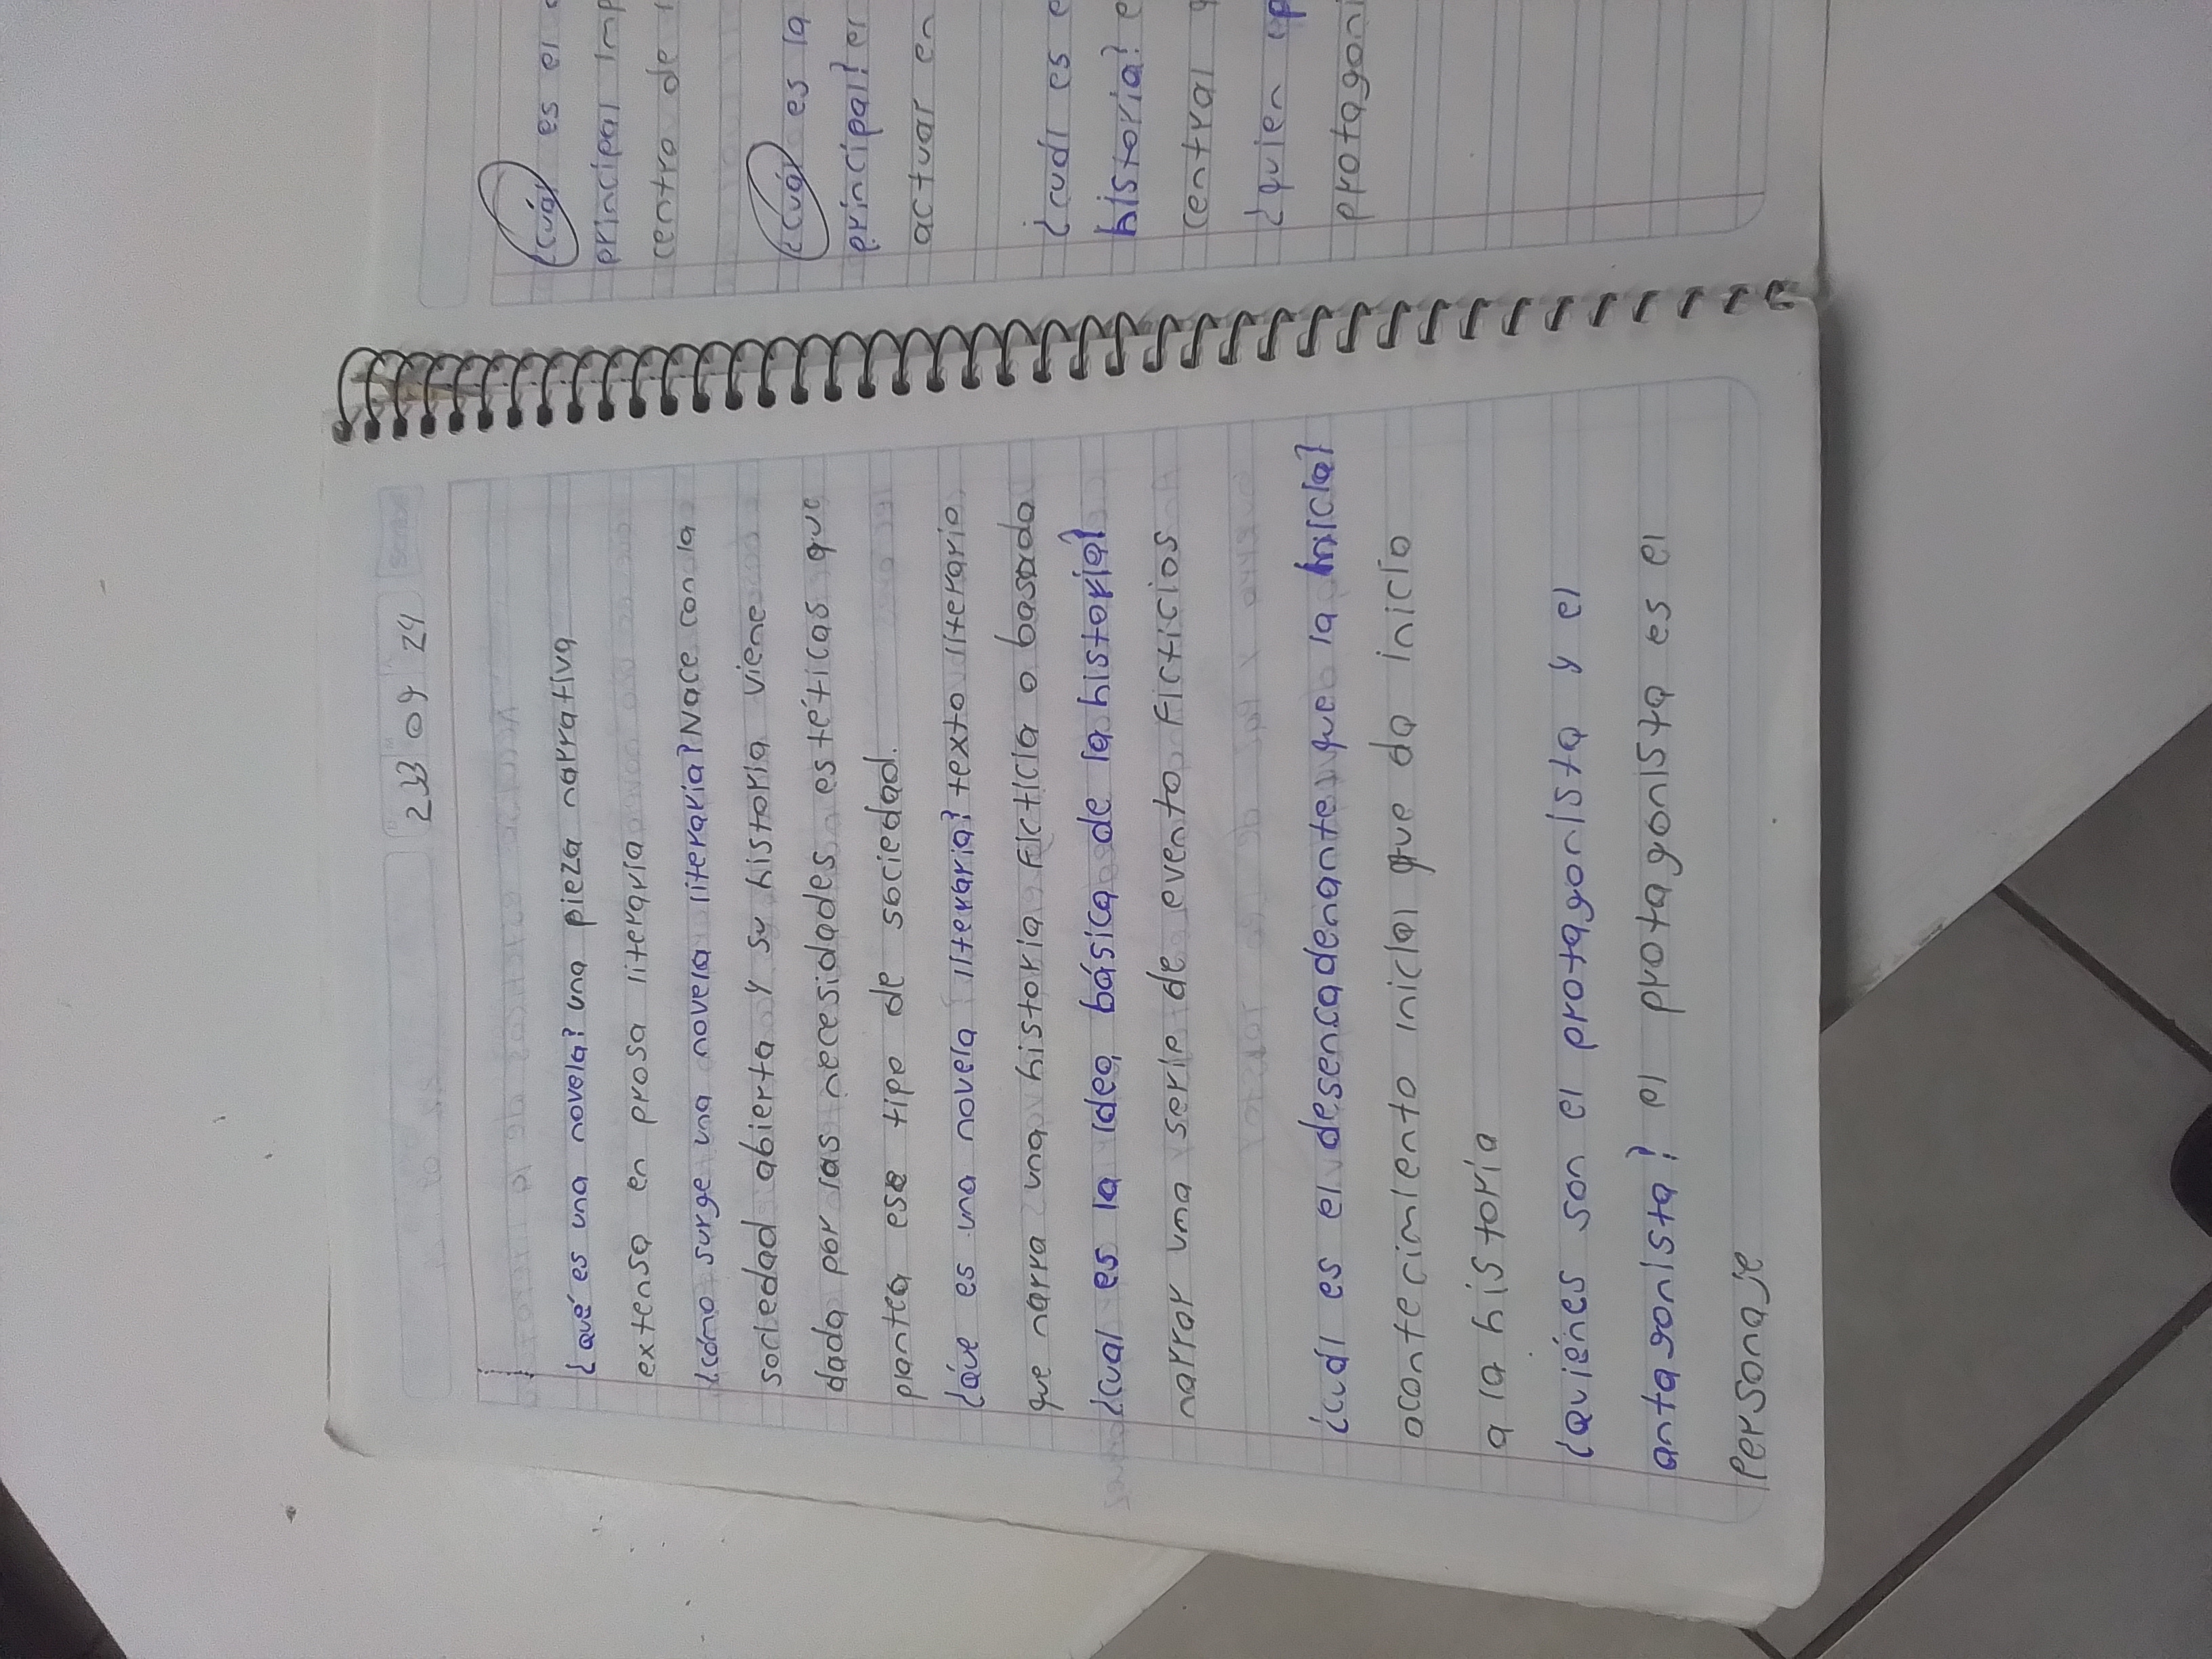 233 09 24
¿qué es una novela? una pieza narrativa
extensa en prosa literaria
¿cómo surge una novela literaria? Nace con la
sociedad abierta y su historia viene
dada por las necesidades estéticas que
plantea ese tipo de sociedad.
¿Qué es una novela literaria? texto literario
que narra una historia ficticia o basada
¿cual es la idea básica de la historia?
narrar una serie de evento ficticios
¿cuál es el desencadenante que la inicia?
acontecimiento inicial que da inicio
a la historia
¿quiénes son el protagonista y el
antagonista? el protagonista es el
Personaje
¿cuál es el
principal
centro de
¿cuál es la
principal? er
actuar en
¿cuál es e
historia? e
central
¿quien
protagoni